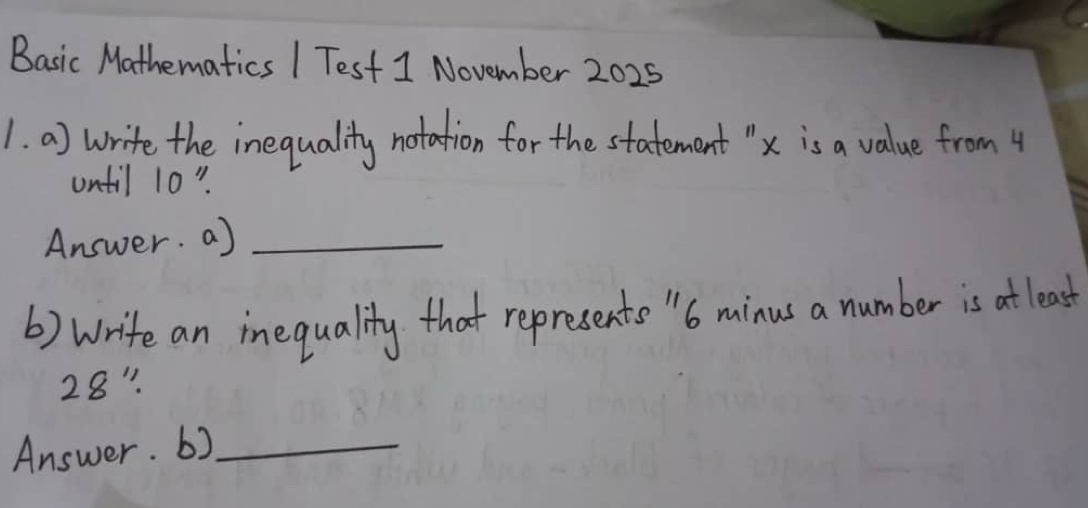 Basic Mathematics 1 Test 1 November 2025
1. a) Write the inequality notation for the statement "x is a value from 4
until 10".
Answer. a) ____________
b) Write an inequality that represents "6 minus a number is at least
28".
Answer. b) ____________